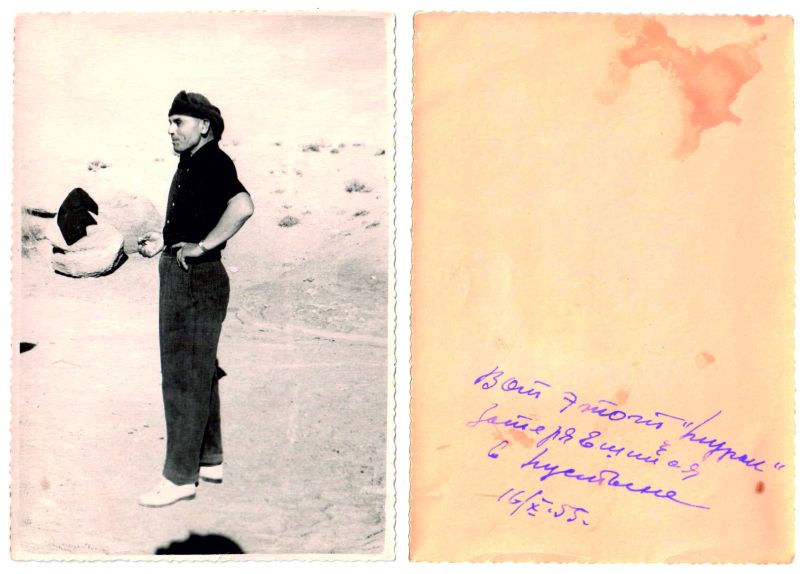 Вот этот
затерявшийся
в пустыне
16/X.55.